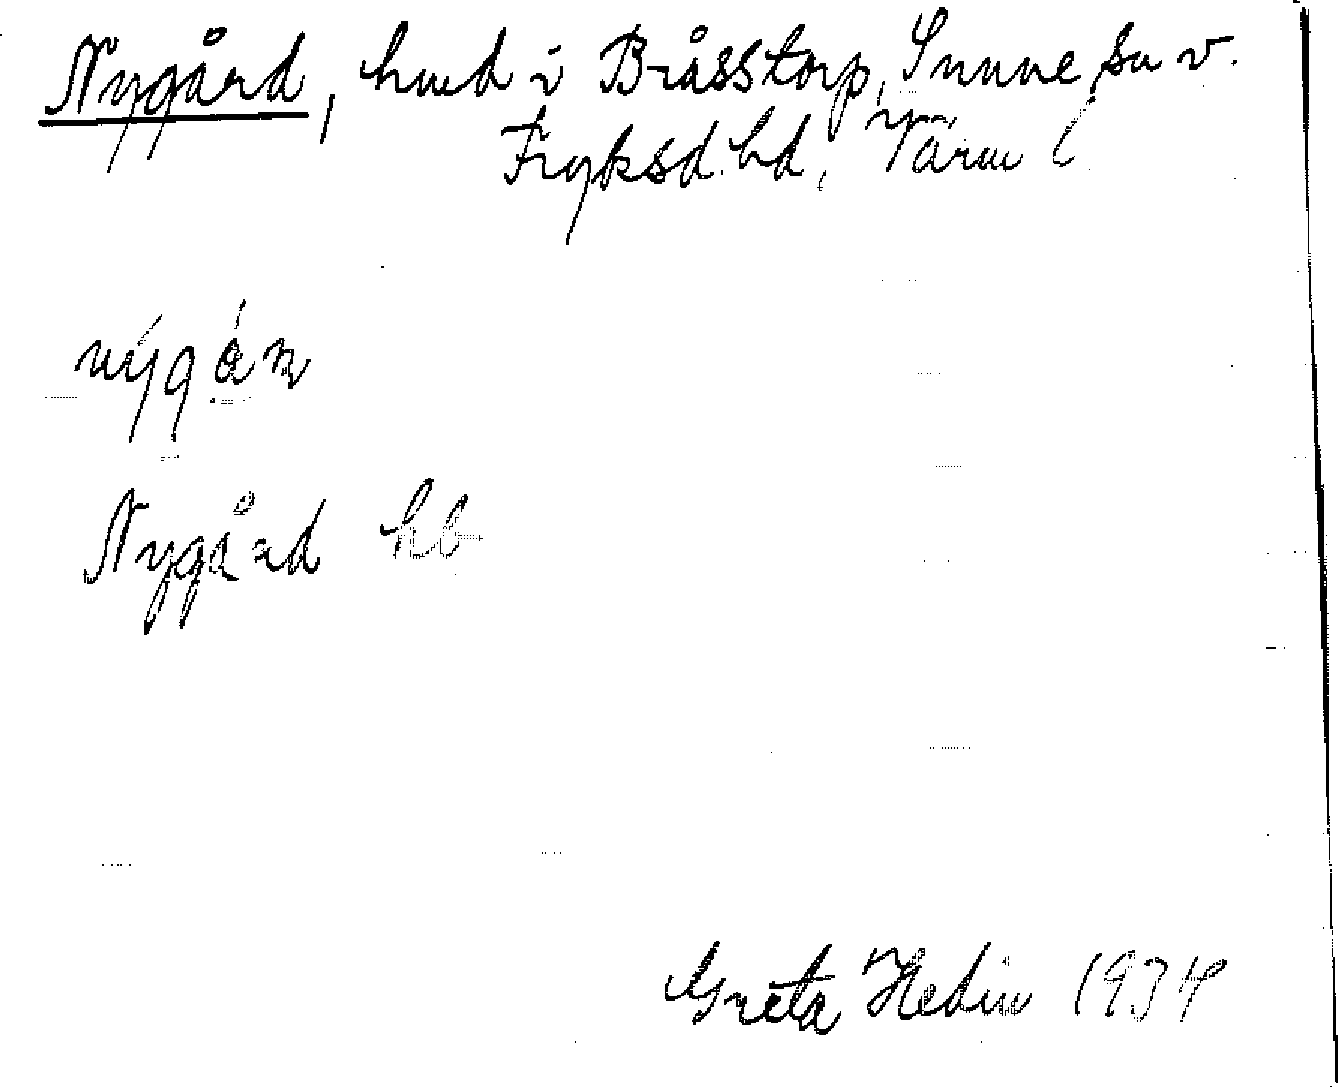 Nygård, hmd i Bråsstorp, Sunne sn v.
Fryksd. hd, Värml.
Nygård hb
Greta Hedin 1934